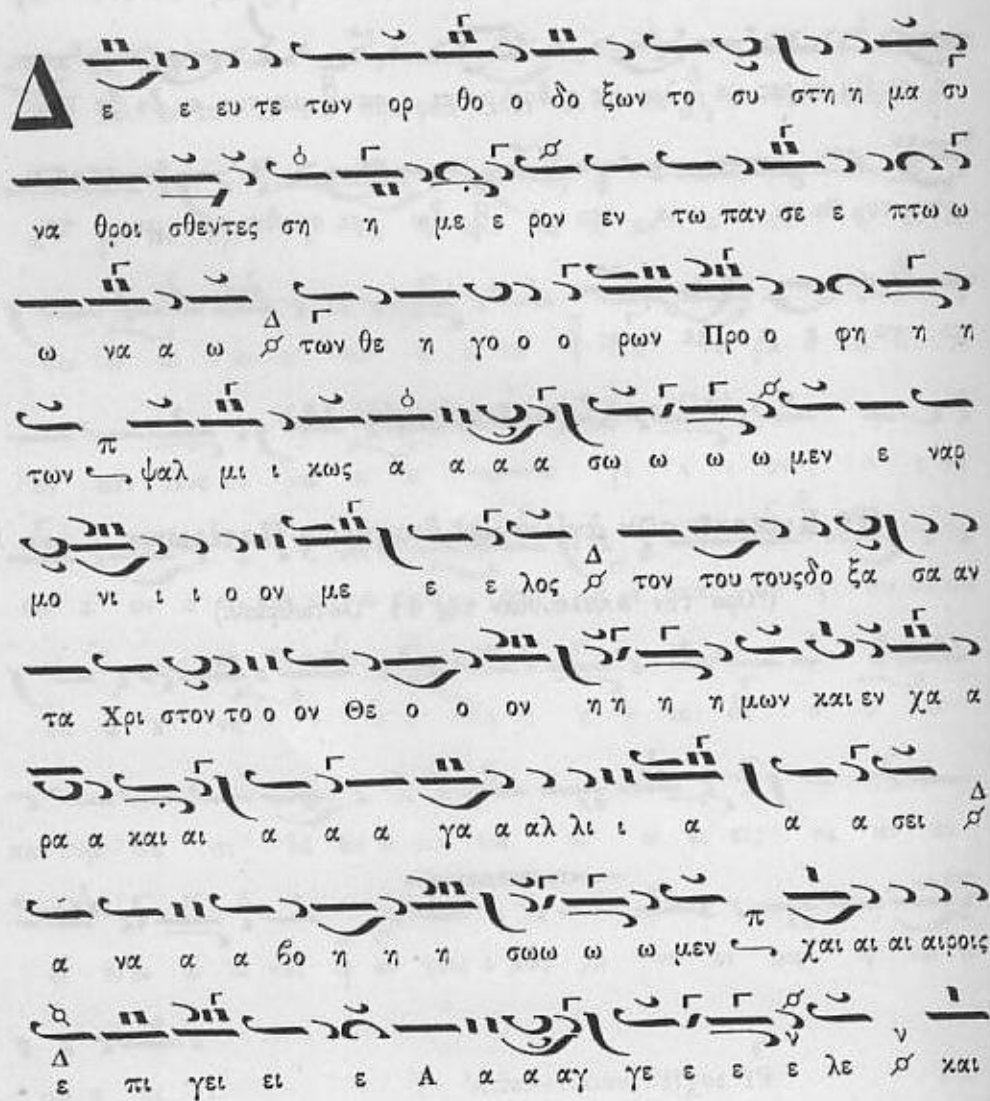 Δ ε ε ευ τε των ορ θο ο δο ξων το συ στη η μα συ
να θροι σθεντες ση η με ε ρον εν τω παν σε ε πτω ω
ω να α ω Δ των θε η γο ο ο ρων Προ ο φη η η
των π ψαλ μι ι κως α α α α σω ω ω ω μεν ε ναρ
μο νι ι ι ο ον με ε ε λος Δ τον του τους δο ξα σα αν
τα Χρι στον το ο ον Θε ο ο ον η η η η μων και εν χα α
ρα α και αι α α α γα α αλ λι ι α α α σει Δ
α να α α βο η η η σω ω ω ω μεν π χαι αι αι αιροις
Δ ε πι γει ει ε Α α α αγ γε ε ε ν ε λε ν και